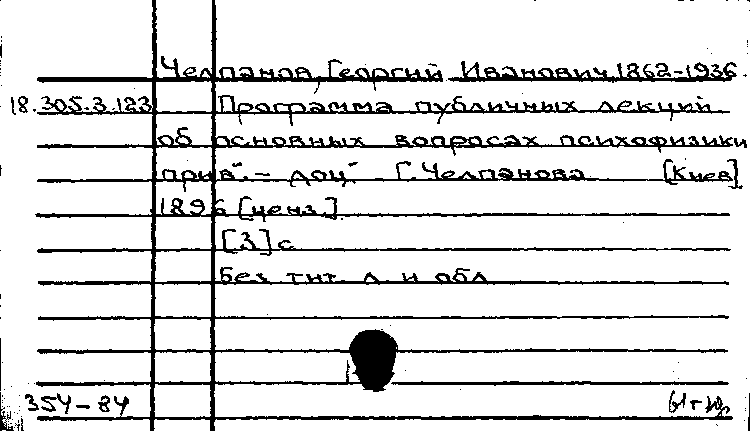 Челпанов, Георгий Иванович, 1862-1936.
18.305.3.123 Программа публичных лекций
об основных вопросах психофизики
прив.- доц. Г. Челпанова [Киев]
1896 [ценз.]
[3] с
Без тит. л. и обл
354-84